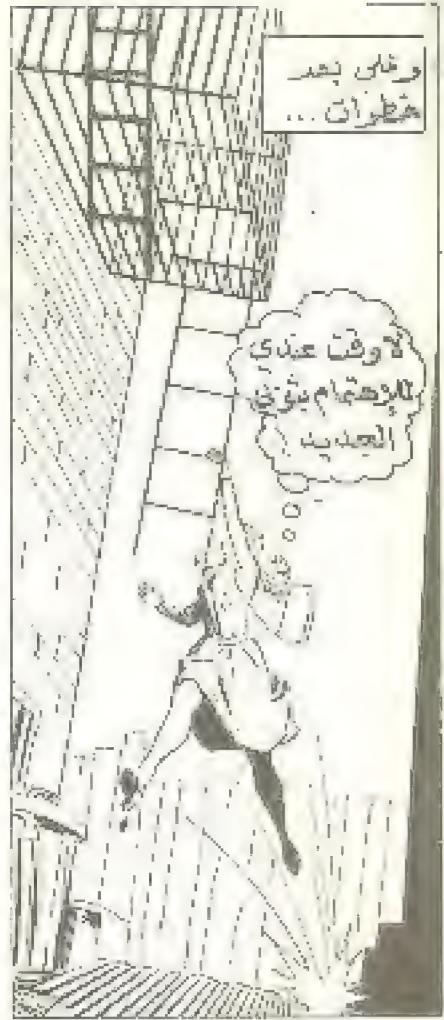 وفى بعد
خطوات ...
لا وقت عندى
للإهتمام بثوبى
الجديد